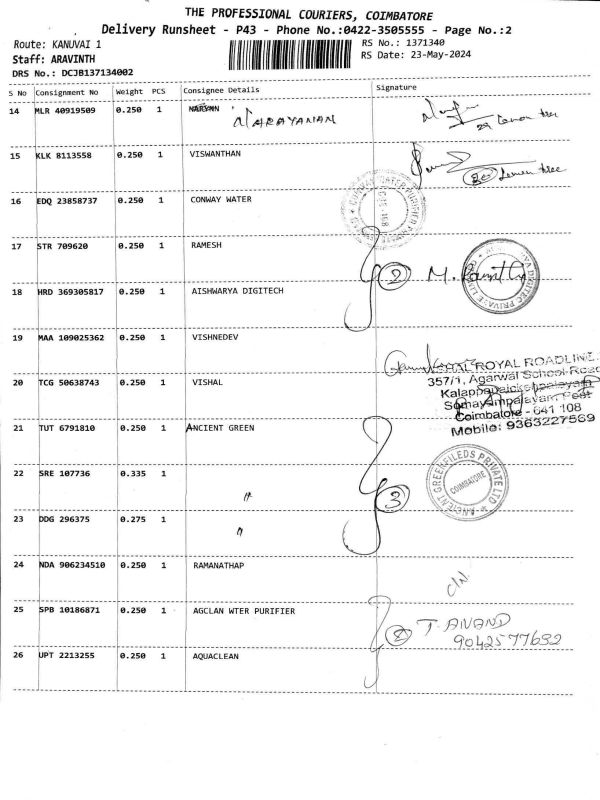 THE PROFESSIONAL COURIERS, COIMBATORE
Delivery Runsheet - P43 - Phone No.:0422-3505555 - Page No.:2
Route: KANUVAI 1
RS No.: 1371340
Staff: ARAVINTH
RS Date: 23-May-2024
DRS No.: DCJB137134002
S No Consignment No Weight PCS Consignee Details Signature
14 MLR 40919509 0.250 1 NARYMN
NARAYANAN
15 KLK 8113558 0.250 1 VISWANTHAN
Lemon tree
16 EDQ 23858737 0.250 1 CONWAY WATER
17 STR 709620 0.250 1 RAMESH
2 M.
18 HRD 369305817 0.250 1 AISHWARYA DIGITECH
19 MAA 109025362 0.250 1 VISHNEDEV
ROYAL ROADLINE
357/1, Agarwal School Road
20 TCG 50638743 0.250 1 VISHAL
Kalappanaickenpalayam
Somayampalayam Post
Coimbatore - 641 108
Mobile: 9363227569
21 TUT 6791810 0.250 1 ANCIENT GREEN
22 SRE 107736 0.335 1 "
ANCIENT GREENFIELDS PRIVATE LTD
COIMBATORE
3
23 DDG 296375 0.275 1 "
24 NDA 906234510 0.250 1 RAMANATHAP
C/N
25 SPB 10186871 0.250 1 AGCLAN WTER PURIFIER
2 T. ANAND
9042577632
26 UPT 2213255 0.250 1 AQUACLEAN